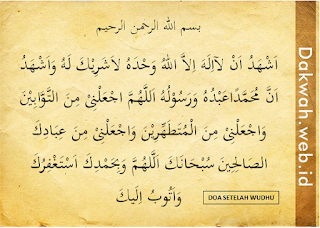 بسم الله الرحمن الرحيم
اَشْهَدُ اَنْ لاَاِلَهَ اِلاَّ اللهُ وَحْدَهُ لاَشَرِيْكَ لَهُ وَاَشْهَدُ
اَنَّ مُحَمَّدًاعَبْدُهُ وَرَسُوْلُهُ اَللَّهُمَّ اجْعَلْنِيْ مِنَ التَّوَّابِيْنَ
وَاجْعَلْنِيْ مِنَ الْمُتَطَهِّرِيْنَ وَاجْعَلْنِيْ مِنْ عِبَادِكَ
الصَالِحِيْنَ سُبْحَانَكَ اَللَّهُمَّ وَبِحَمْدِكَ اَسْتَغْفِرُكَ
وَاَتُوْبُ اِلَيْكَ
DOA SETELAH WUDHU'
Dakwah.web.id